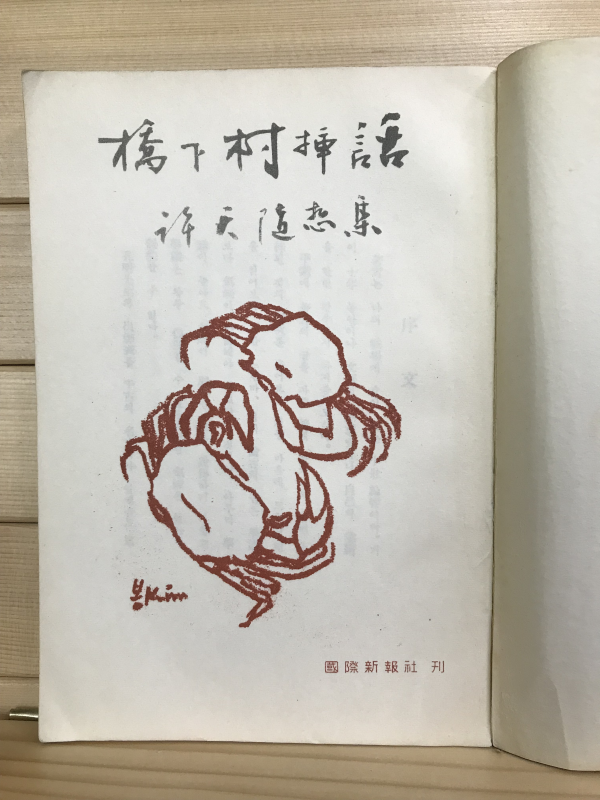 橋下村揷話
許天随想集
봉Kim
國際新報社 刊
序文